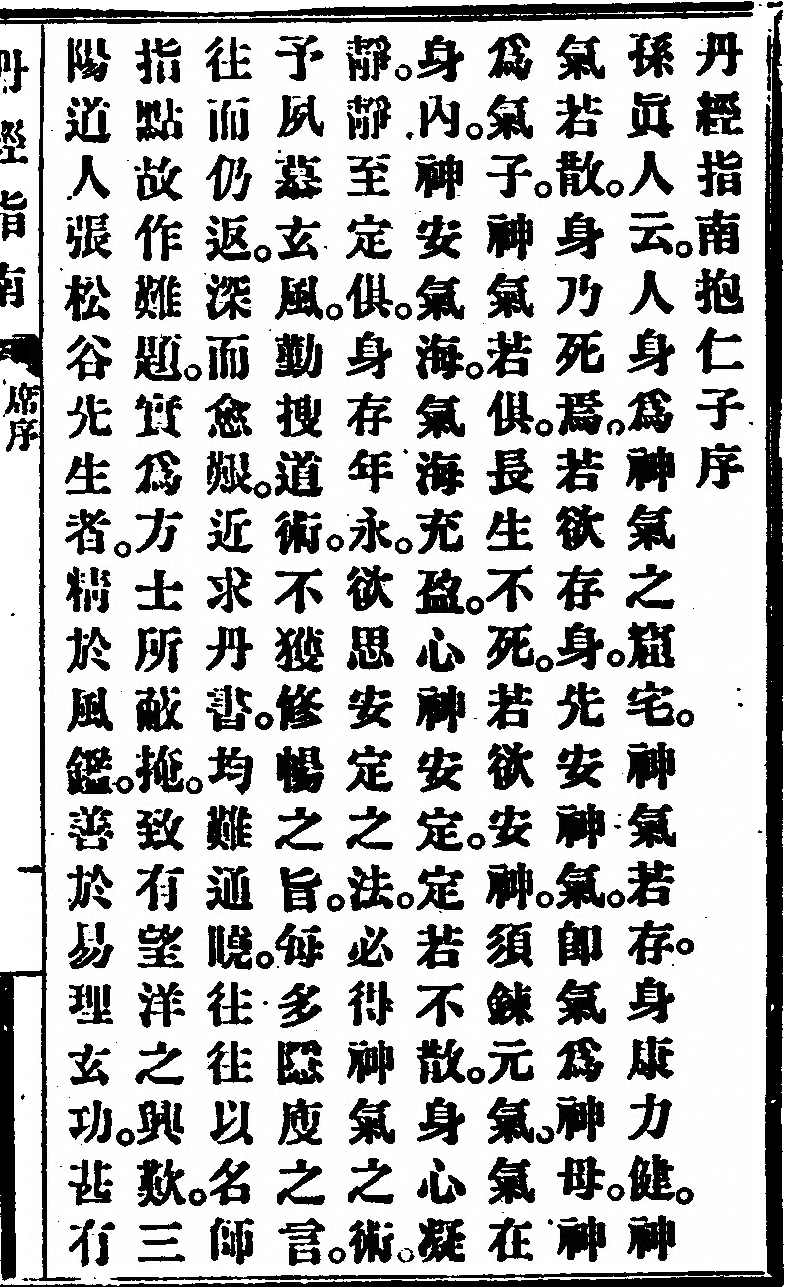 丹經指南抱仁子序
孫眞人云。人身爲神氣之窟宅。神氣若存。身康力健。神
氣若散。身乃死焉。若欲存身。先安神氣。卽氣爲神母。神
爲氣子。神氣若俱。長生不死。若欲安神。須鍊元氣。氣在
身內。神安氣海。氣海充盈。心神安定。定若不散。身心凝
靜。靜至定俱。身存年永。欲思安定之法。必得神氣之術。
予夙慕玄風。勤搜道術。不獲修暢之旨。每多隱廋之言。
往而仍返。深而愈艱。近求丹書。均難通曉。往往以名師
指點故作難題。實爲方士所蔽掩。致有望洋之興歎。三
陽道人張松谷先生者。精於風鑑。善於易理玄功。甚有
丹經指南
席序